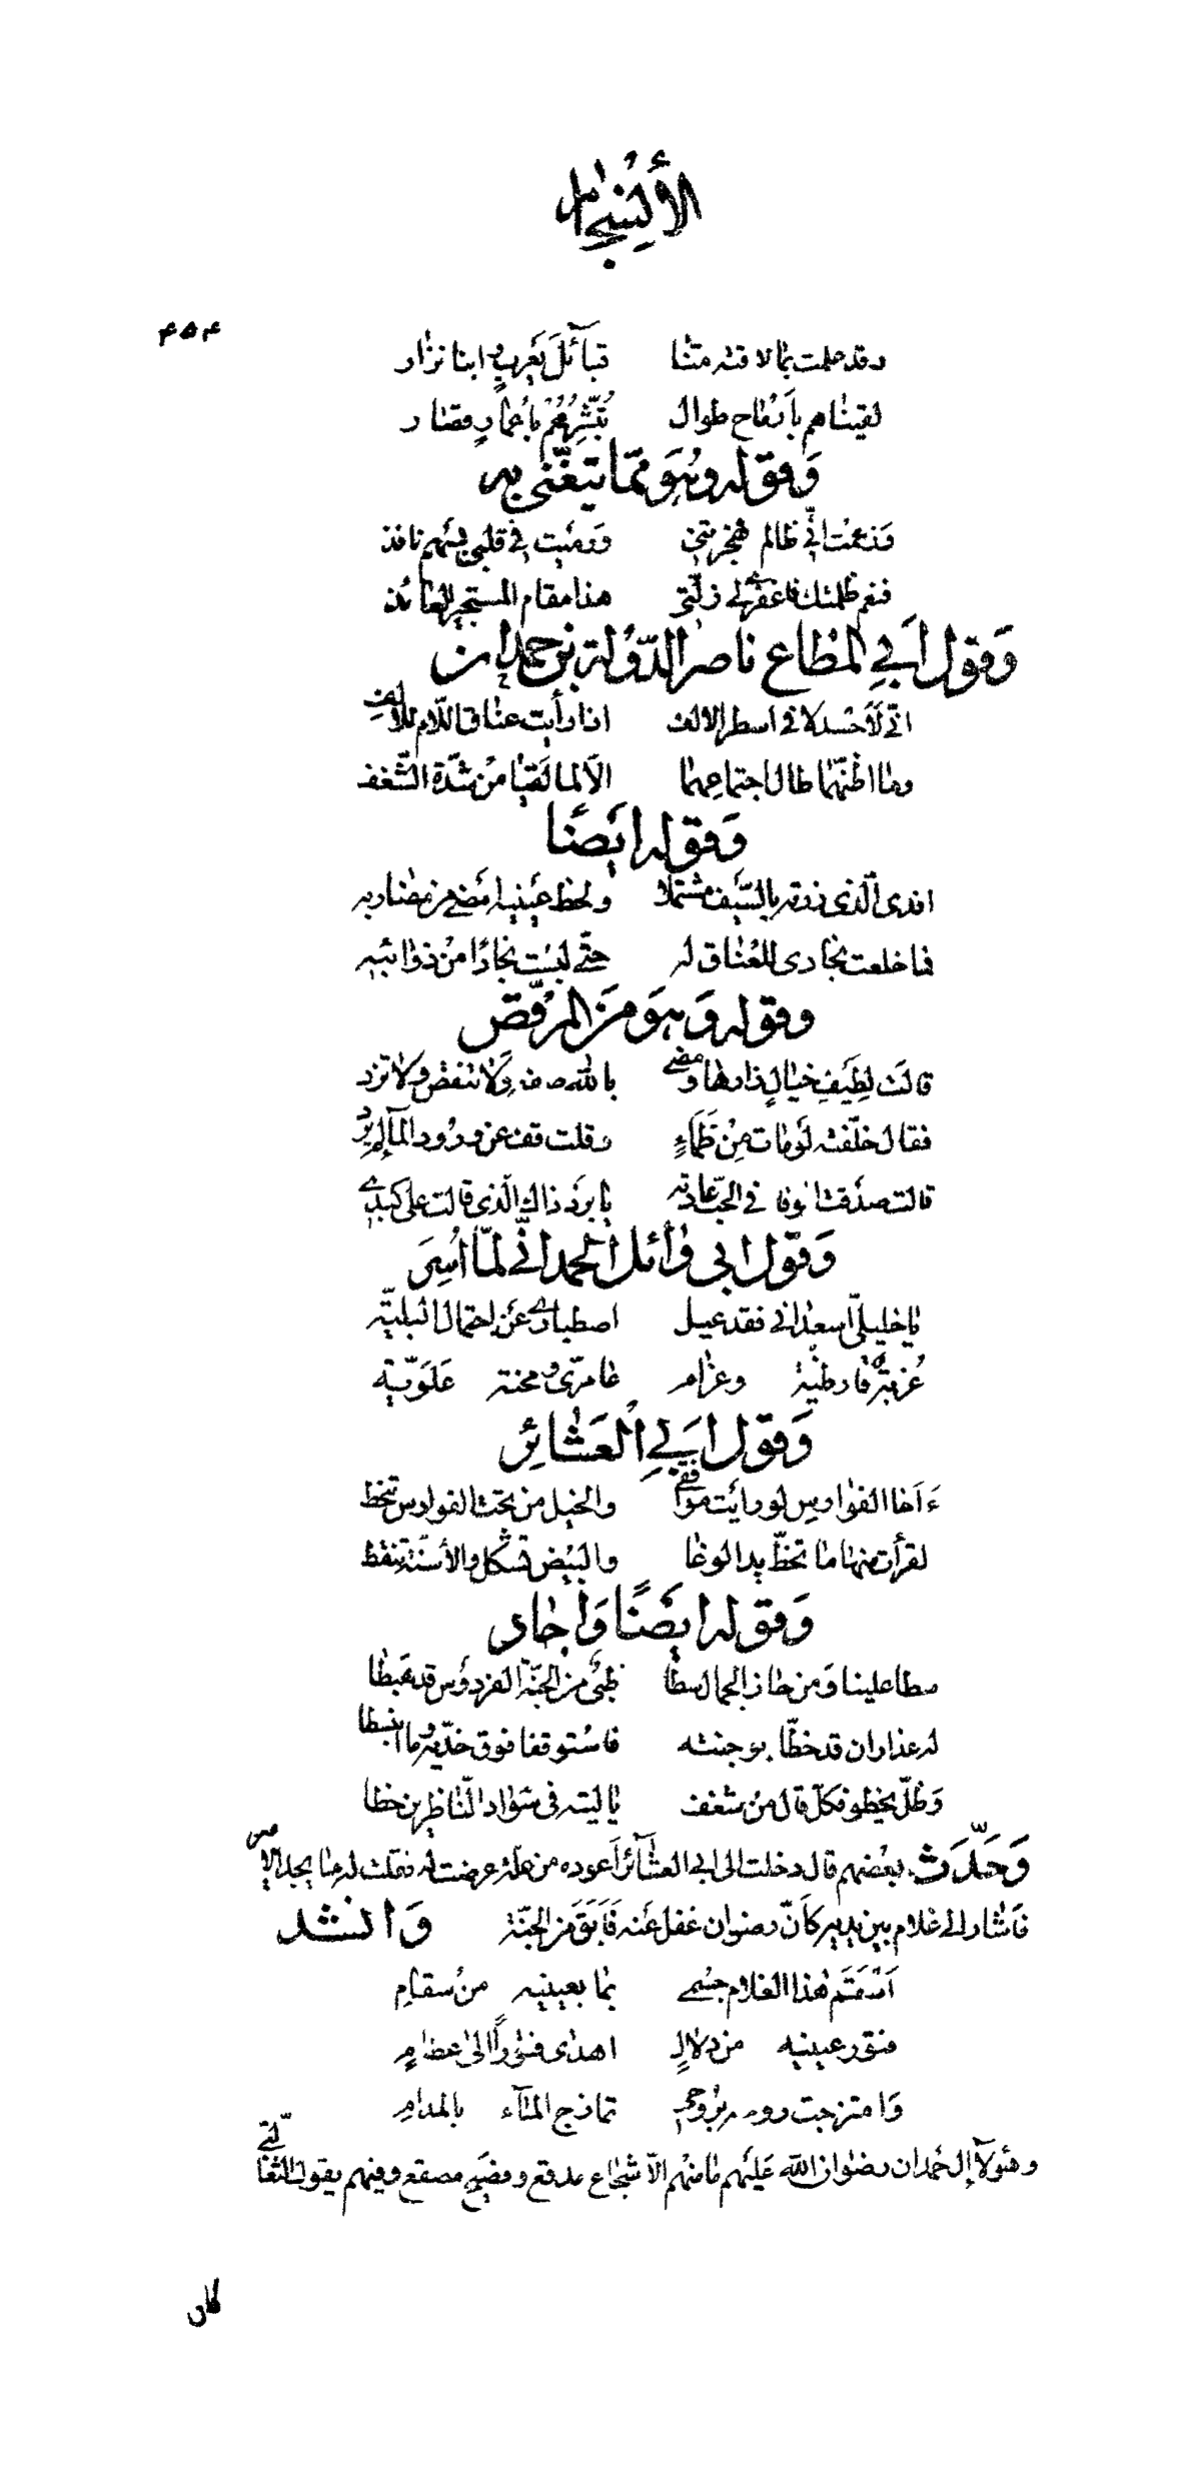 الأنيجال
۴۵۴
وقد علمت بما لاقته منّا قبآئل يعرب وابنا نزار
لقيناهم بأرماح طوال تبشّرهم بأعمار قصار
وقوله وهو ممّا يتغنّى به
وزعمت انّي ظالم فهجرتني ورميت في قلبي بسهم نافذ
فنعم ظلمتك فاغفري لي زلّتي هذا مقام المستجير العائذ
وقول أبي المطاع ناصر الدّولة بن حمدان
انّي لأحسد لا في اسطر الالف اذا رأيت عناق اللّام للألف
وما اظنّهما طال اجتماعهما الّا لما لقيا من شدّة الشّغف
وقوله ايضًا
افدى الّذى زرته بالسّيف مشتملا ولحظ عينيه أمضى من مضاربه
فما خلعت نجادى للعناق له حتّى لبست نجادًا من ذوائبه
وقوله وهو من المرقّص
قالت لطيف خيال زارها ومضى بالله صفه ولا تنقص ولا تزد
فقال خلّفته لومات من ظماءٍ وقلت قف عن ورود المآء لم يرد
قالت صدقت الوفا في الحبّ عادته يا برد ذاك الّذى قالت على كبدي
وقول ابى وائل الحمدانّي لمّا اسر
يا خليلىّ اسعدانى فقد عيل اصطباري عن احتمال البليّة
غربة قارظيّة وغرام عامرىّ ومحنة علويّة
وقول ابي العشائر
ءأخا الفوارس لو رايت مواقفي والخيل من تحت الفوارس تنحط
لقرأت منها ما تخطّ يد الوغا والبيض تشكل والأسنّة تنقط
وقوله ايضًا واجاد
سطا علينا ومن حاز الجمال سطا ظبىٌ من الجنّة الفردوس قد هبطا
له عذاران قد خطّا بوجنته فاستوقفا فوق خدّيه وما انبسطا
وظلّ يخطو فكلّ قال من شغف يا ليته فى سواد النّاظرين خطا
وحدّث بعضهم قال دخلت الى ابي العشآئر أعوده من علّة عرضت له فقلت له ما يجد الأمير
فأشار الى غلام بين يديه كأنّ رضوان غفل عنه فأبق من الجنّة وانشد
أسقم هذا الغلام جسمي بما بعينيه من سقام
فتور عينيه من دلالٍ اهدى فتورًا الى عظامي
وامتزجت روحه بروحي تمازج المآء بالمدام
وهؤلآء ال حمدان رضوان اللّه عليهم ما منهم الّا شجاع مدقع وفصيح مصقع وفيهم يقول الثّعالبّي
كان